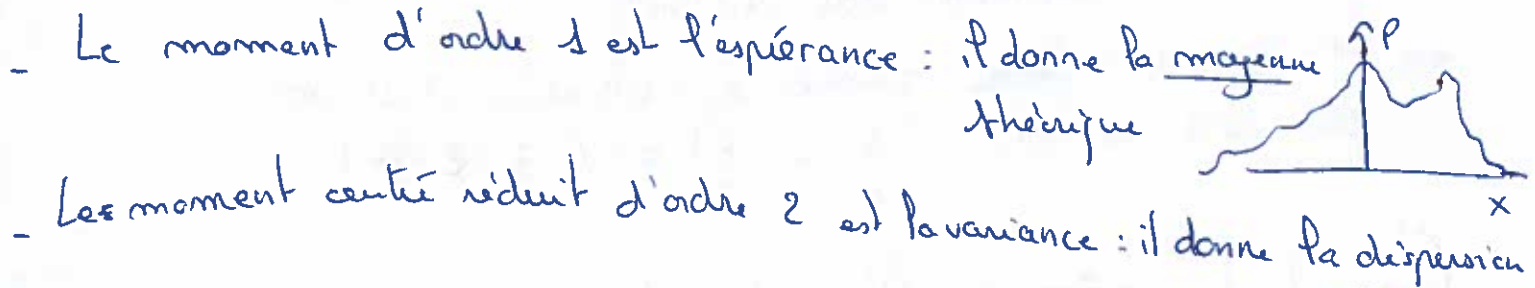 - Le moment d'ordre 1 est l'espérance : il donne la moyenne
théorique
P
x
- Les moment centré réduit d'ordre 2 est la variance : il donne la dispersion